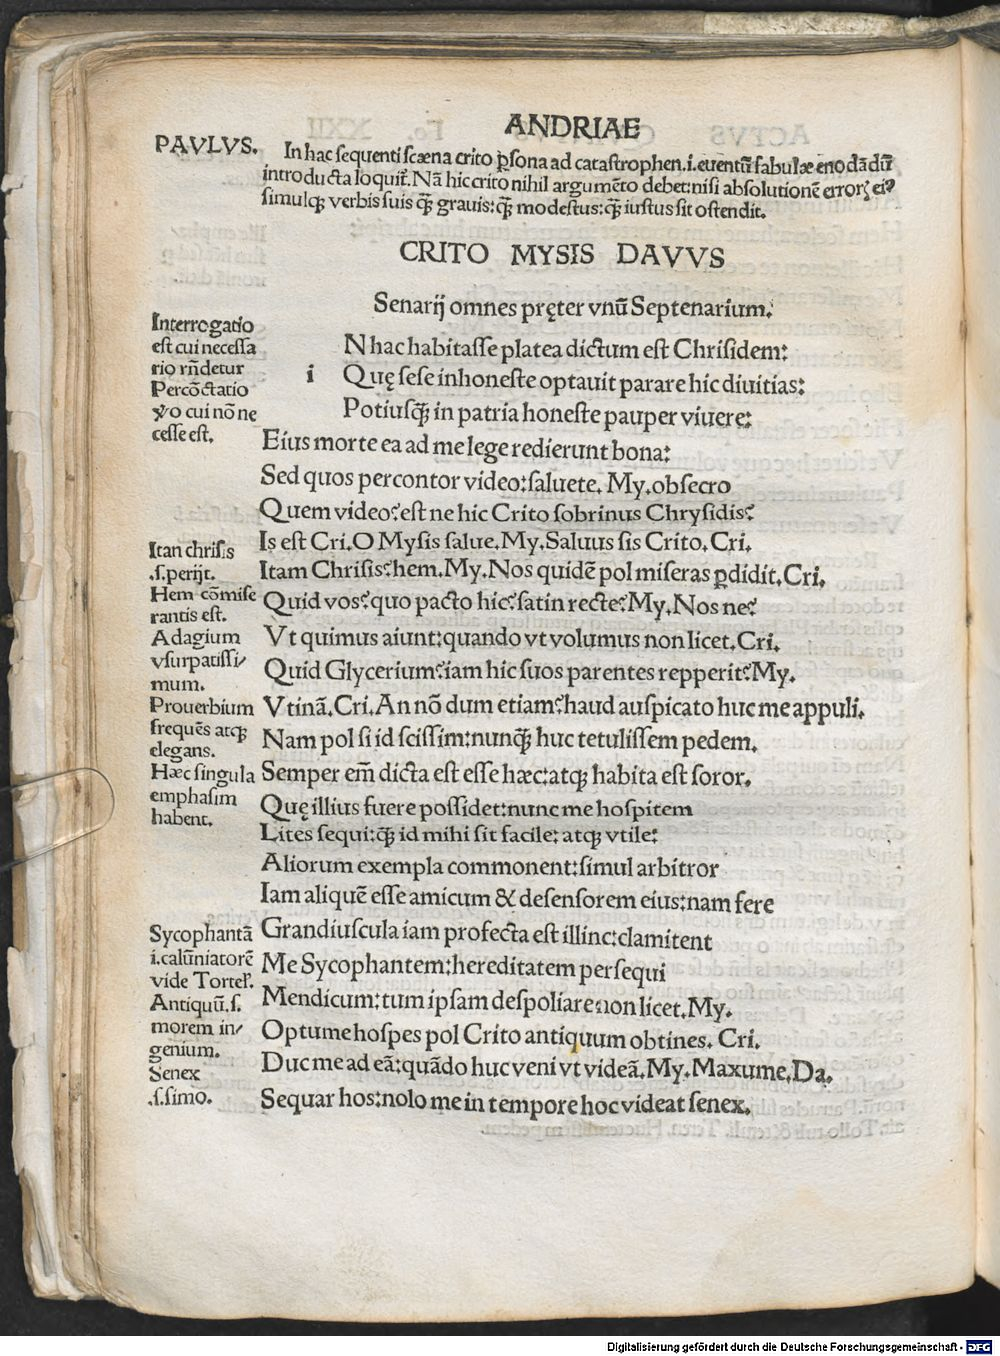 ANDRIAE
PAVLVS.
In hac sequenti scæna crito ꝑsona ad catastrophen.i.euentũ fabulæ enodãdũ
introducta loquit᷑. Nã hic crito nihil argumẽto debet:nisi absolutionẽ erroꝝ eiꝰ
simulqꝫ verbis suis qꝫ̃ grauis:qꝫ̃ modestus:qꝫ̃ iustus sit ostendit.
CRITO MYSIS DAVVS
Senarij omnes pręter vnũ Septenarium.
Interrogatio
est cui necessa
rio rñdetur
Percõctatio
ṽo cui nõ ne
cesse est.
i
N hac habitasse platea dictum est Chrisidem:
Quę sese inhoneste optauit parare hic diuitias:
Potiusqꝫ̃ in patria honeste pauper viuere:
Eius morte ea ad me lege redierunt bona:
Sed quos percontor video:saluete. My.obsecro
Quem video?est ne hic Crito sobrinus Chrysidis?
Is est Cri.O Mysis salue.My.Saluus sis Crito.Cri.
Itan chrisis
.s.perijt.
Itam Chrisis?hem.My.Nos quidẽ pol miseras ꝑdidit.Cri.
Hem cõmise
rantis est.
Quid vos?quo pacto hic?satin recte?My.Nos ne?
Adagium
vsurpatissi/
mum.
Vt quimus aiunt:quando vt volumus non licet.Cri.
Quid Glycerium?iam hic suos parentes repperit?My.
Prouerbium
frequẽs atqꝫ
elegans.
Vtinã.Cri.An nõ dum etiam?haud auspicato huc me appuli.
Nam pol si id scissim:nunqꝫ̃ huc tetulissem pedem.
Hæc singula
emphasim
habent.
Semper em̃ dicta est esse hæc:atqꝫ habita est soror.
Quę illius fuere possidet:nunc me hospitem
Lites sequi:qꝫ̃ id mihi sit facile: atqꝫ vtile:
Aliorum exempla commonent:simul arbitror
Iam aliquẽ esse amicum & defensorem eius:nam fere
Sycophantã
i.calũniatorẽ
vide Tortel̃.
Grandiuscula iam profecta est illinc:clamitent
Me Sycophantem:hereditatem persequi
Antiquũ.s.
morem in/
genium.
Mendicum:tum ipsam despoliare non licet.My.
Optume hospes pol Crito antiquum obtines. Cri.
Senex
.s.simo.
Duc me ad eã:quãdo huc veni vt videã.My.Maxume.Da.
Sequar hos:nolo me in tempore hoc videat senex.
Digitalisierung gefördert durch die Deutsche Forschungsgemeinschaft - DFG